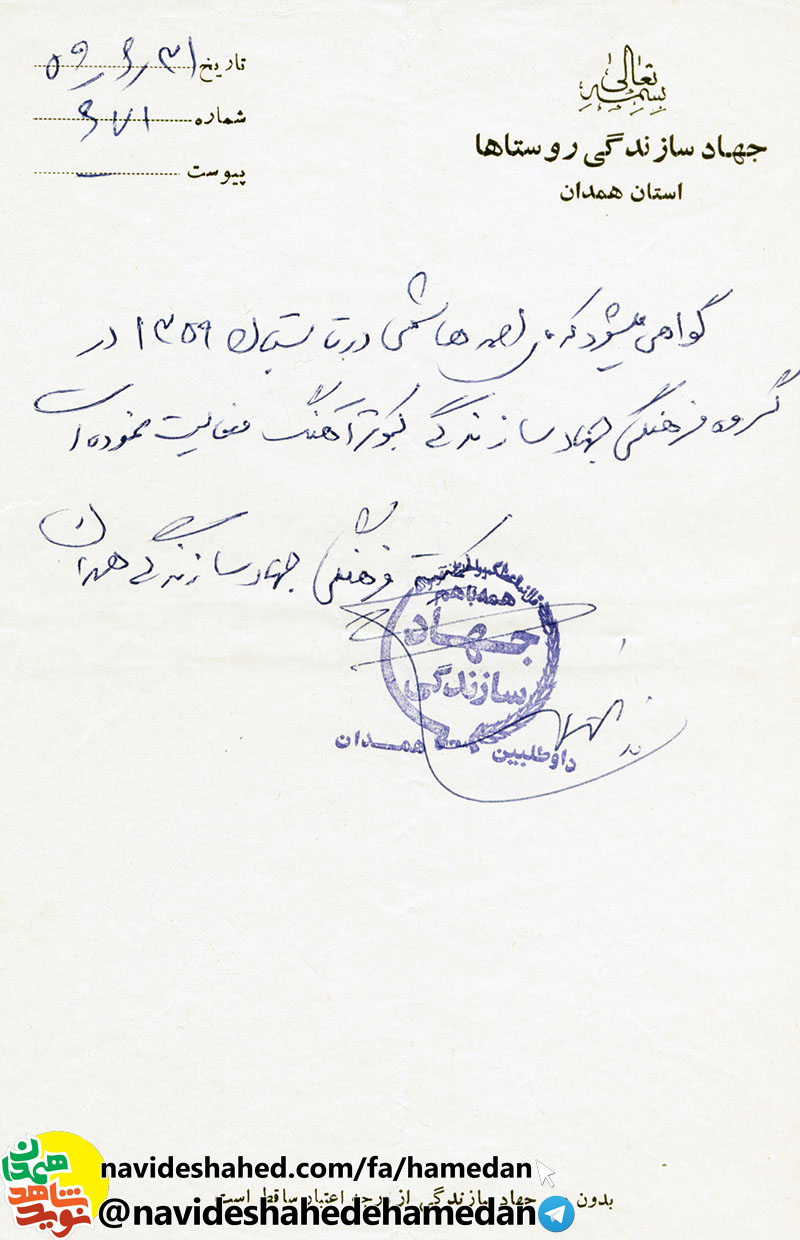 بسمه تعالی
جهاد سازندگی روستاها
استان همدان
تاریخ ۵۹/۶/۳۱
شماره ۶۷۱
پیوست —
گواهی میشود که هاشمی در تابستان ۱۳۵۹ در
گروه فرهنگی جهاد سازندگی کبوترآهنگ فعالیت نموده است
فرهنگی جهاد سازندگی همدان
همه باهم
جهاد
سازندگی
داوطلبین همدان
بدون جهاد سازندگی از درجه اعتبار ساقط است
navideshahed.com/fa/hamedan
@navideshahedehamedan
نوید شاهد همدان